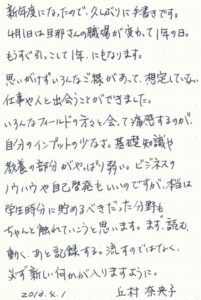 新年度になったので、久しぶりに手書きです。
4月1日は旦那さんの職場が変わって1年の日。
もうすぐ引っこして1年、にもなります。
思いがけずいろんなご縁があって、想定していない
仕事や人と出会うことができました。
いろんなフィールドの方々と会って痛感するのが、
自分のインプットのなさ。基礎知識や
教養の部分がやっぱり弱い。ビジネスの
ノウハウや自己啓発もいいのですが、本当は
学生時分に貯めるべきだった分野も
ちゃんと触れていこうと思います。まず、読む、
動く、あと記録する。流すのではなく、
必ず新しい何かが入りますように。
2012.4.1 丘村奈央子